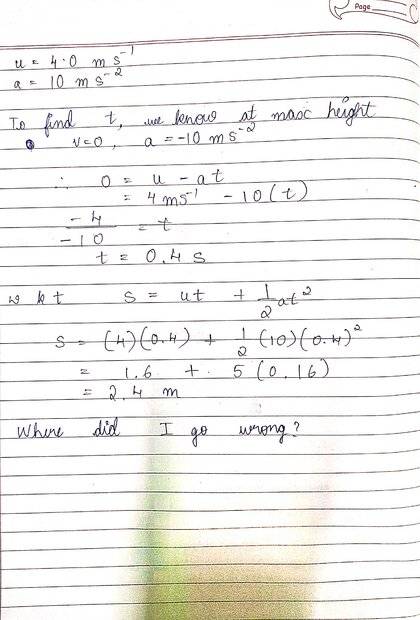 Page
u = 4.0 m s⁻¹
a = 10 m s⁻²
To find t, we know at max height
v=0, a = -10 m s⁻²
∴ 0 = u - at
= 4 ms⁻¹ - 10(t)
-4/-10 = t
t = 0.4 s
w k t s = ut + 1/2 at²
s = (4)(0.4) + 1/2 (10)(0.4)²
= 1.6 + 5(0.16)
= 2.4 m
Where did I go wrong?